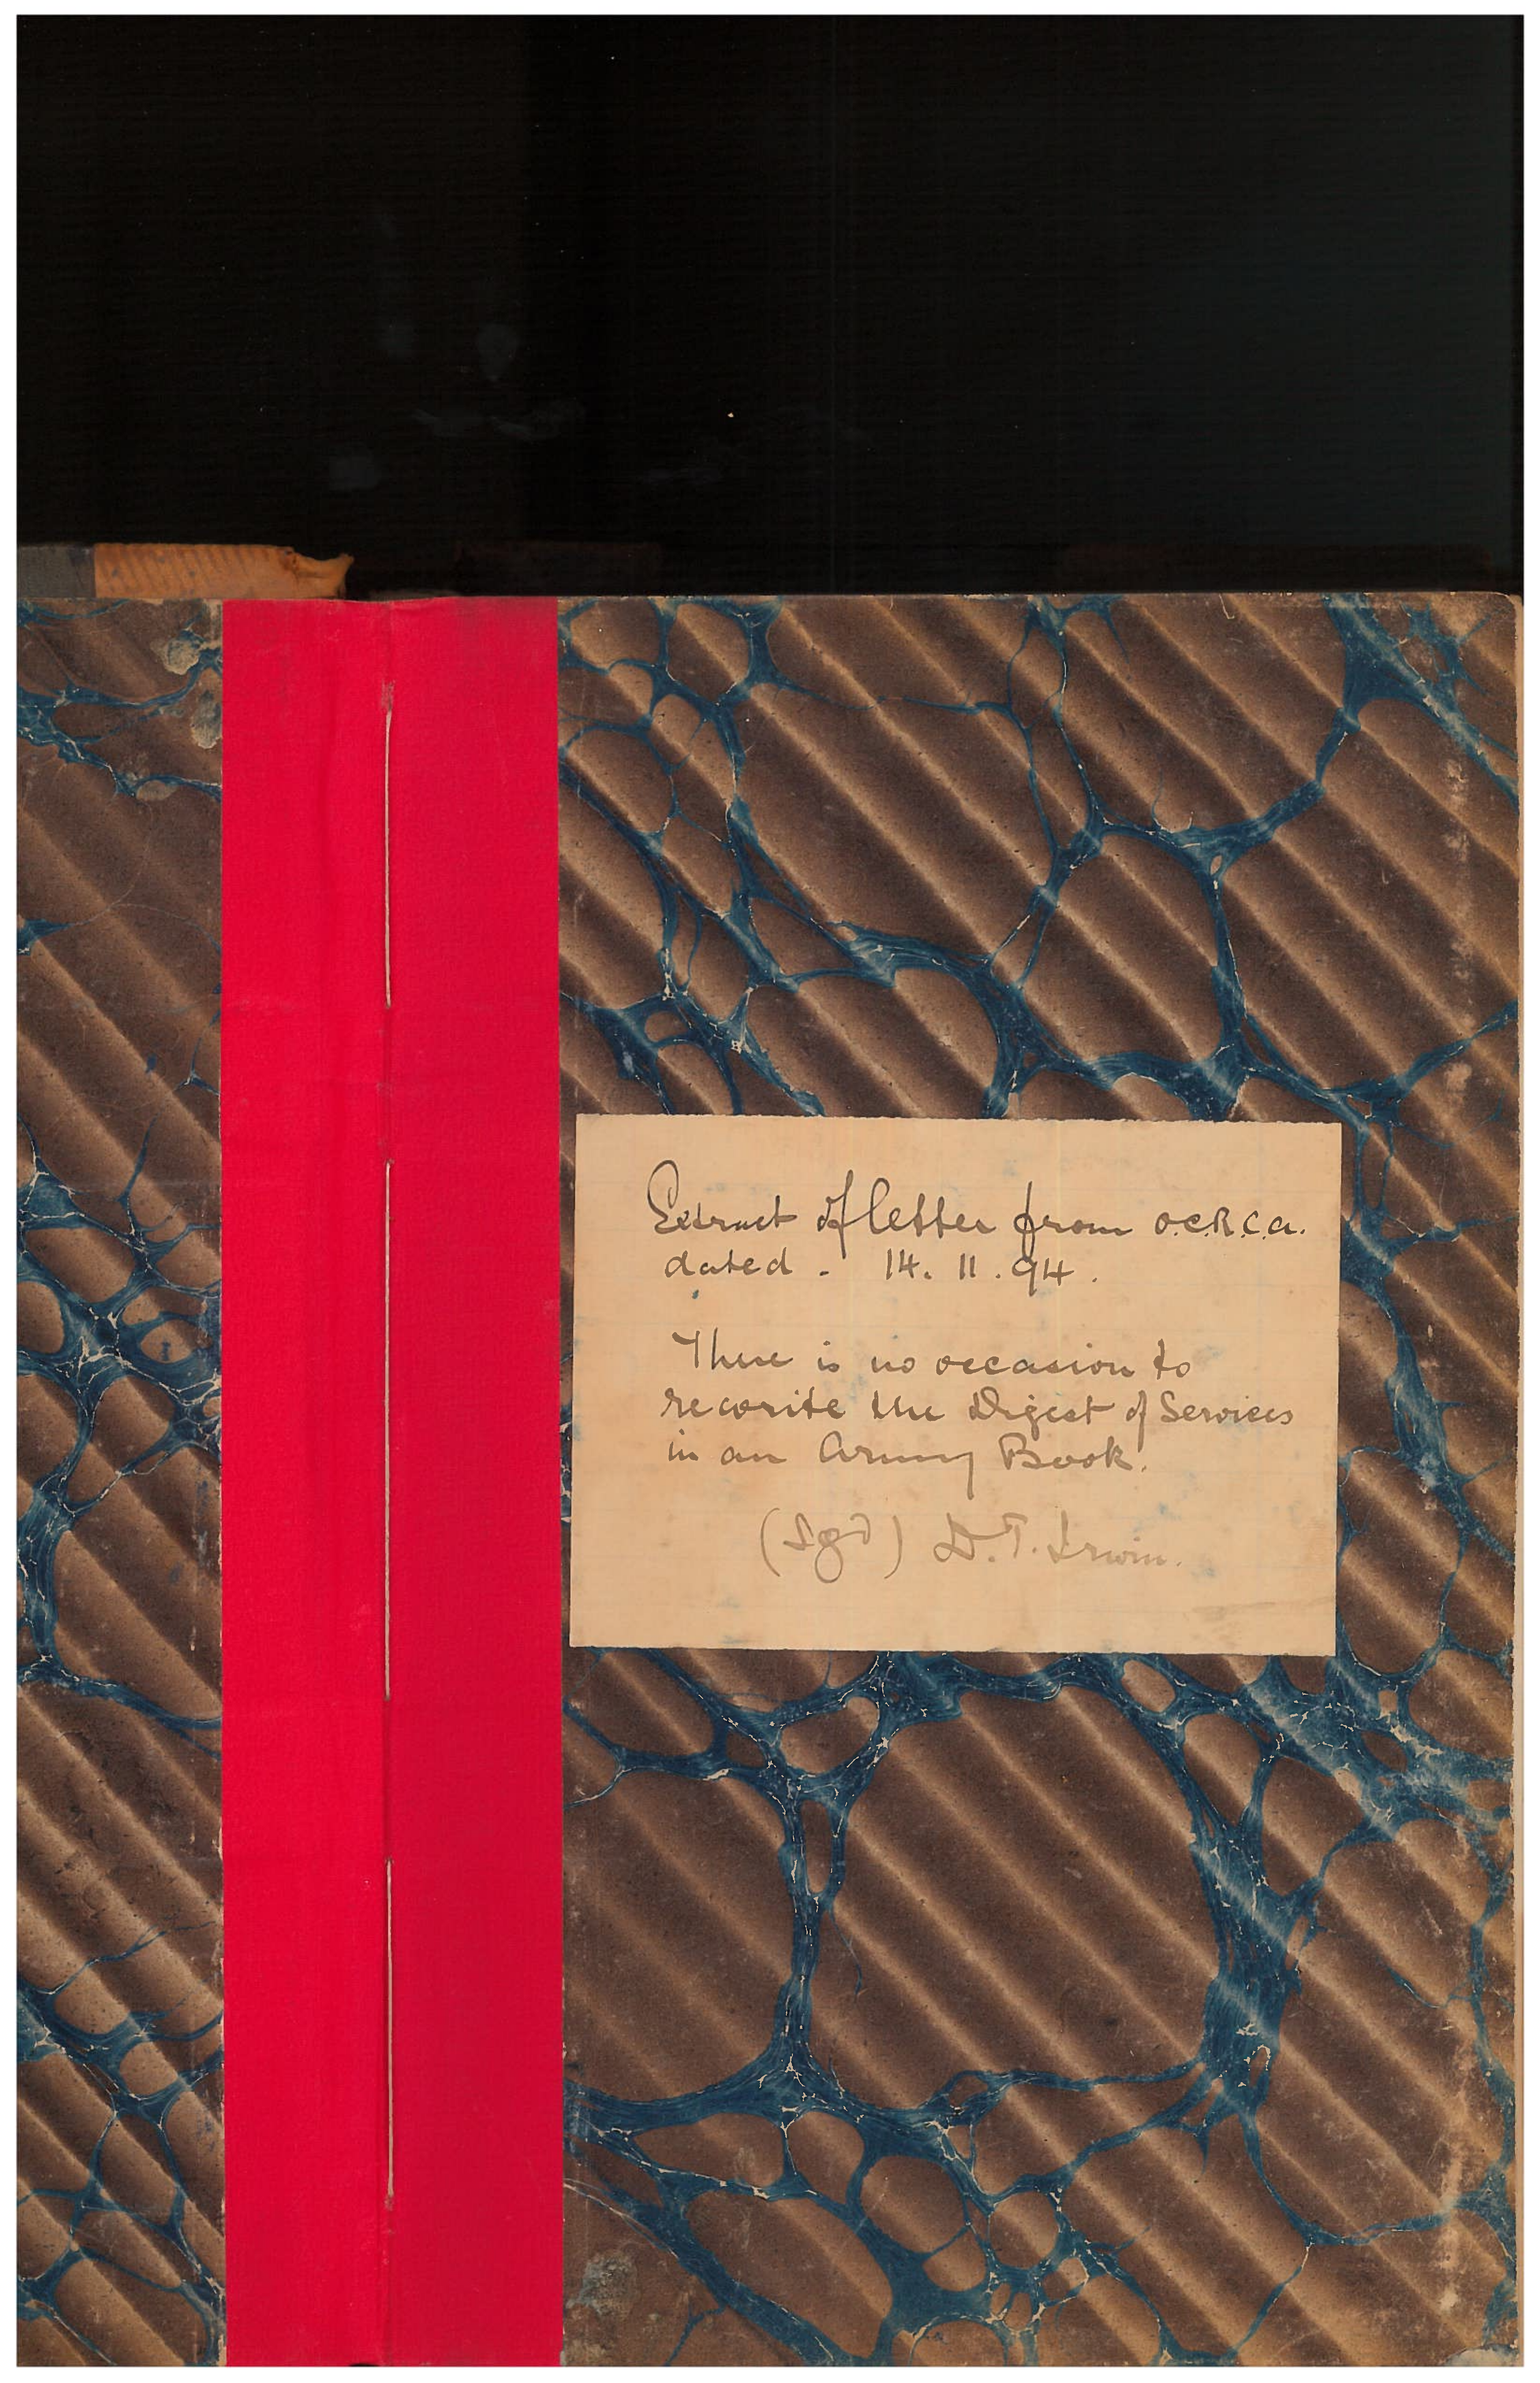 Extract of letter from O.C.R.C.A.
dated - 14. 11. 94.
There is no occasion to
rewrite the Digest of Services
in an Army Book.
(Sgd) D.T. Irwin.